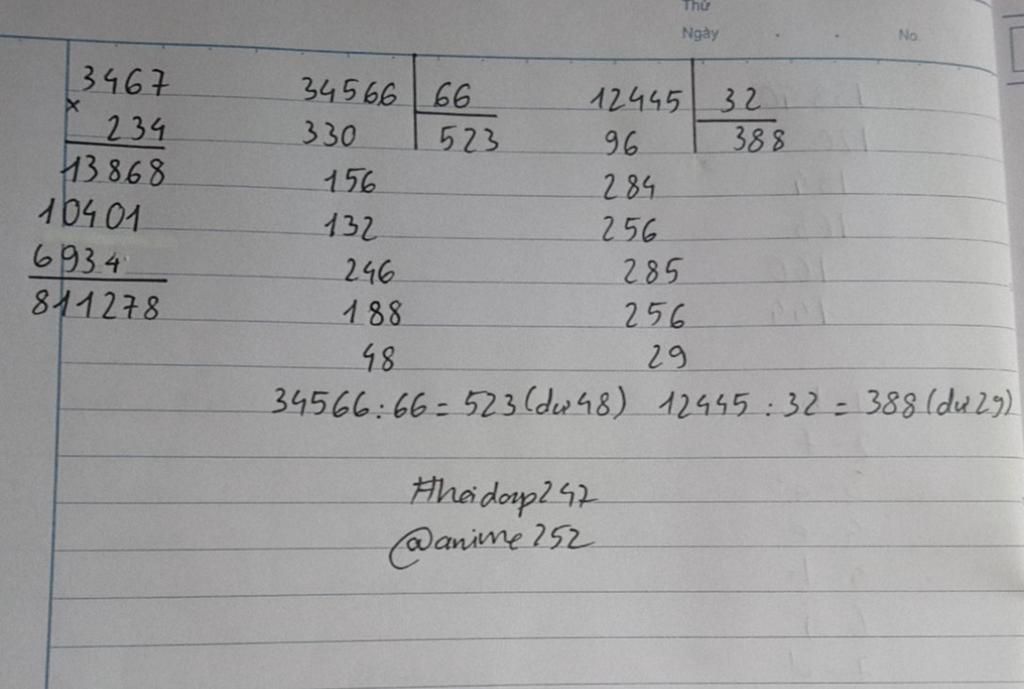 Thứ
Ngày . . No.
3467
×
234
13868
10401
6934
811278
34566 66
330 523
156
132
246
188
48
12445 32
96 388
284
256
285
256
29
34566:66=523(dư48) 12445:32=388(dư29)
#hoidap247
@anime252